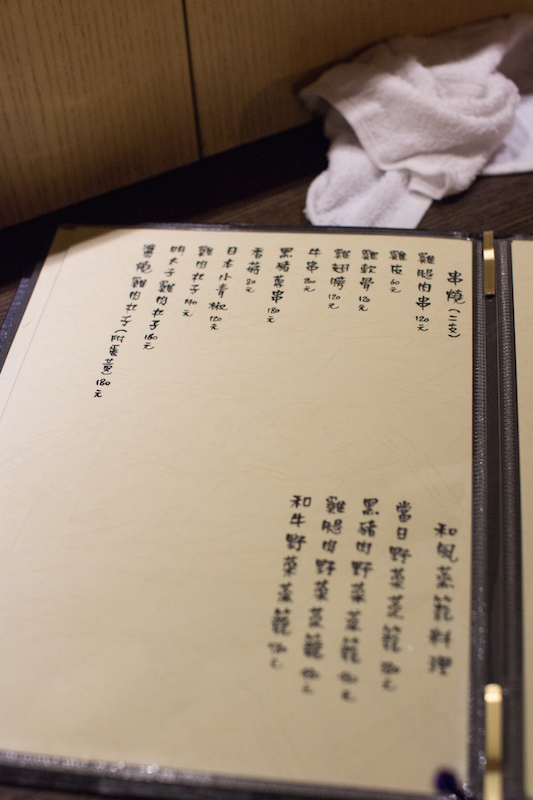 串燒(二支)
雞腿肉串 120元
雞皮 60元
雞軟骨 120元
雞翅膀 120元
牛串 元
黑豬蔥串 180元
香菇 元
日本小青椒 120元
雞肉丸子 元
明太子雞肉丸子 160元
醬燒雞肉丸子(附蛋黃) 180元
和風蒸籠料理
當日野菜蒸籠 元
黑豬肉野菜蒸籠 元
雞腿肉野菜蒸籠 元
和牛野菜蒸籠 元